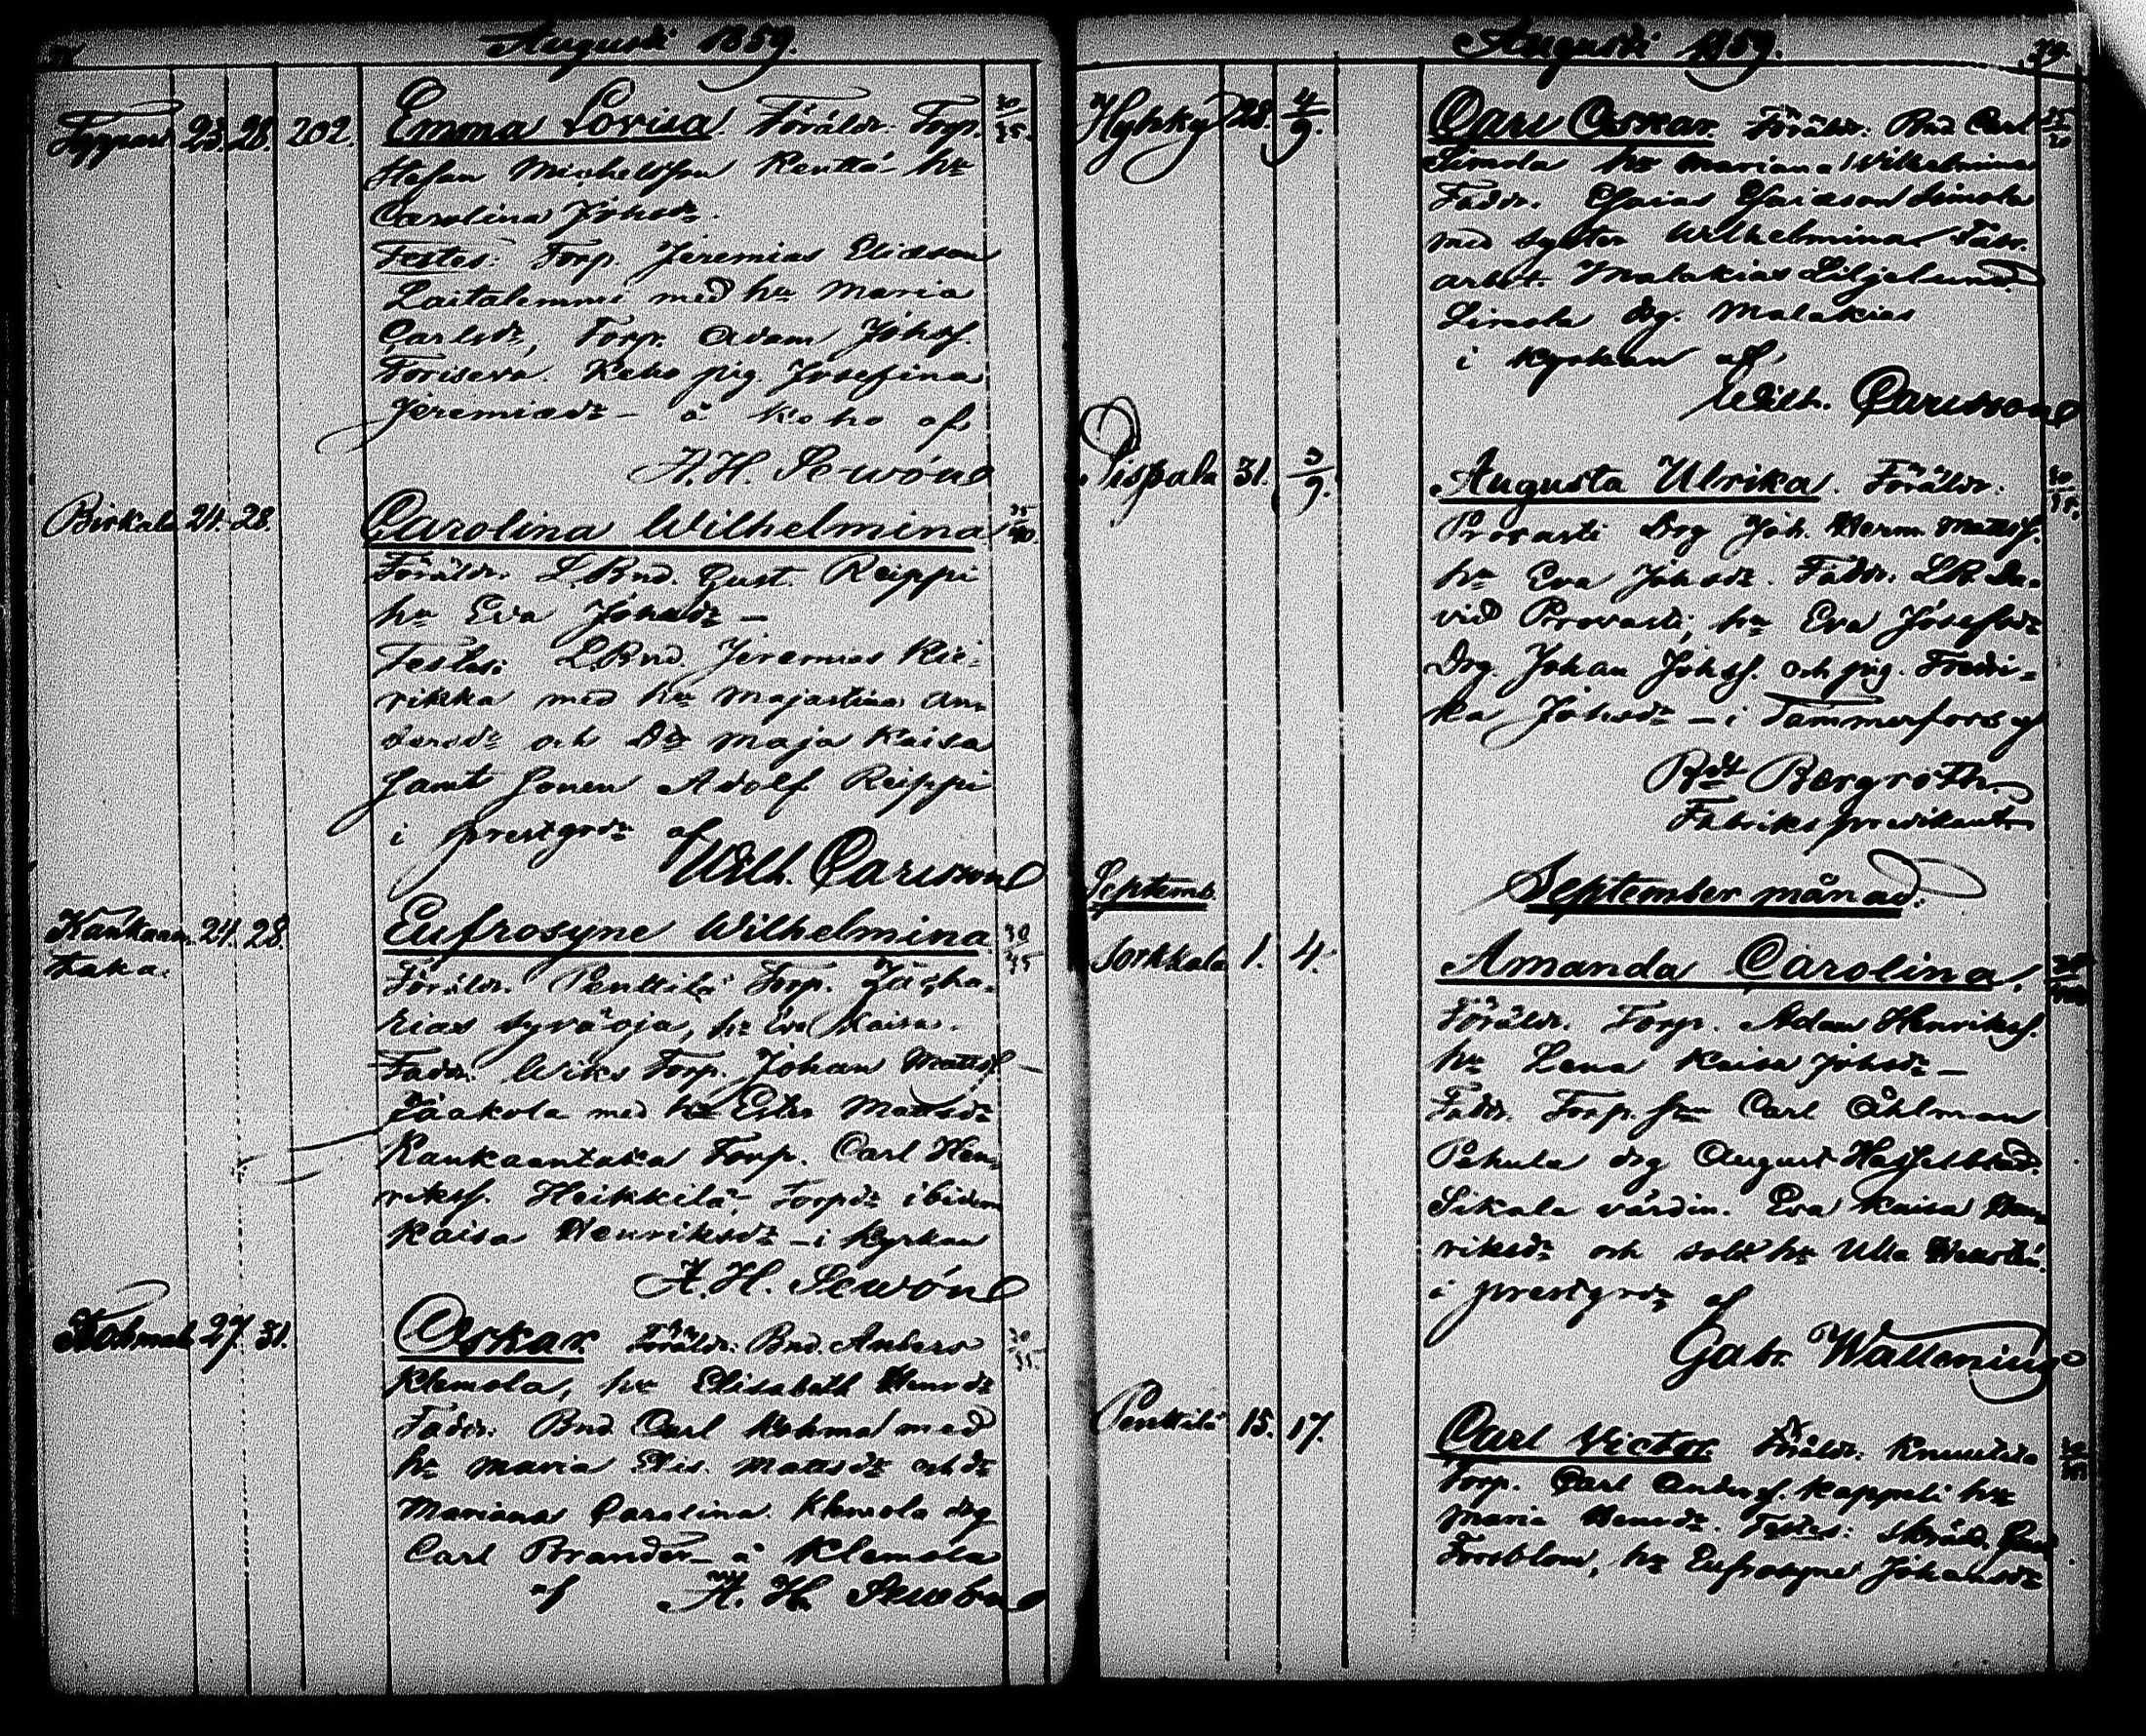 Augusti 1859.
23. 28. 202. Emma Lovisa. Föräldr. Torp. 30/35.
Stefan Michelsson Kenttä hu
Carolina Johsdr.
Testes: Torp. Jeremias Eliasson
Laitalemmi med hu Maria
Carlsdr, Torp. Adam Johss.
Toriseva. Keho pig. Josefina
Jeremiasdr - å Koho af
A. H. Sewón
Birkala 24. 28. Carolina Wilhelmina 35/40.
Föräldr. L.Bnd. Gust. Reippi
hu Eva Johsdr -
Testes: L.Bnd. Jeremias Kie-
rikka med hu Majastina An-
dersdr och Dr Maja Kaisa
samt sonen Adolf Reippi
i prestgrdn af
Wilh. Carlsson
Kankaan- 24. 28. Eufrosyne Wilhelmina 30/35
taka.
Föräldr. Penttilä Torp. Zacha-
rias Syväoja, hu Eva Kaisa.
Faddr. Wiks Torp. Johan Mattss -
Jäakola med hu Ester Mattsdr
Kankaantaka Torp. Carl Hen-
rikss. Heikkilä, Torpdr ibidem
Kaisa Henriksdr - i Kyrkan
A. H. Sewón
27. 31. Oskar. Föräldr: Bnd. Anders 30/35.
Klemola, hu Elisabeth Henrdr
Faddr. Bnd Carl Kohmal med
hu Maria Elis. Mattsdr och dr
Mariana Carolina Klemola drg
Carl Brander - å Klemola
af A. H. Sewón
Augusti 1859. 39.
Hyhky 28. 4/9. Carl Oskar. Föräldr: Bnd Carl 25/30
Simola hu Mariana Wilhelmina
Faddr. Esaias Esaiasson Simola
med syster Wilhelmina Fabr.
arbet. Malakias Liljelund
Simola drg. Malakias
i Kyrkan af
Wilh. Carlsson
Pispala 31. 3/9. Augusta Ulrika. Föräldr: 30/35.
Provasti Drg Joh. Herm. Mattss.
hu Eva Johsdr. Faddr: LB. Da-
vid Provasti, hu Eva Josefsdr
Drg. Johan Johss. och pig. Fredri-
ka Johsdr - i Tammerfors af
Rdt Bergroth
Fabriks predikant
Septemb. September månad.
Sorkkala 1. 4. Amanda Carolina.
Föräldr. Torp. Adam Henrikss.
hu Lena Kaisa Johsdr -
Faddr. Torp. sn Carl Åhlman
Pekula drg August Hasselblad.
Sikala värdin. Eva Kaisa Hen-
riksdr och sold hu Ulla
i prestgrdn af
Gabr. Wallenius
Penttilä 15. 17. Carl Victor. Föräldr: Knuutila
Torp. Carl Anderss. Kappeli hu
Maria Henrdr. Testes: Skrädd. Gust
Forsblom, hu Eufrosyne Johansdr